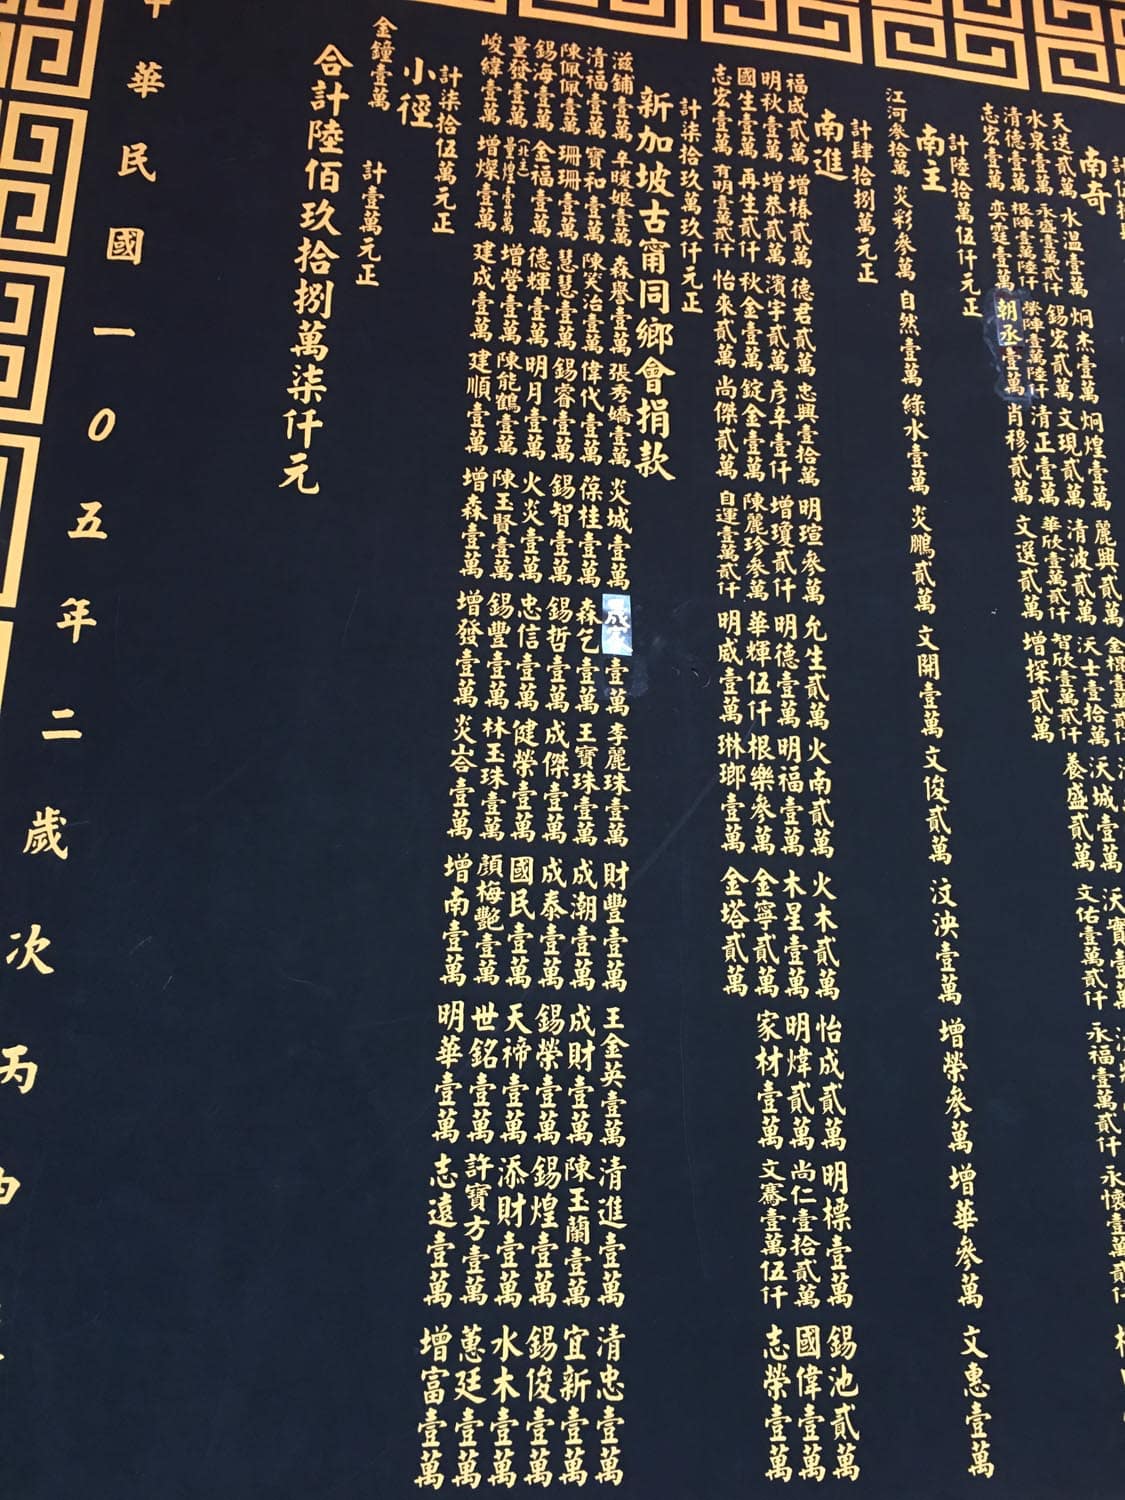 南奇
天送貳萬 水溫壹萬 炯杰壹萬 炯煌壹萬 麗興貳萬
水泉壹萬 永盛壹萬貳仟 錫宏貳萬 文現貳萬 清波貳萬 天士壹拾萬 天城壹萬 天寶壹萬
清德壹萬 根陣壹萬陸仟 榮陣壹萬陸仟 清正壹萬 華欣壹萬貳仟 智欣壹萬貳仟 養盛貳萬 文佑壹萬貳仟 永福壹萬貳仟 永懷壹萬貳仟
志宏壹萬 奕霆壹萬 朝丞壹萬 肖穆貳萬 文選貳萬 增探貳萬
計陸拾萬伍仟元正
南主
江河參拾萬 炎彩參萬 自然壹萬 綠水壹萬 炎鵬貳萬 文開壹萬 文俊貳萬 汶泱壹萬 增榮參萬 增華參萬 文惠壹萬
計肆拾捌萬元正
南進
福成貳萬 增椿貳萬 德君貳萬 忠興壹拾萬 明瑄參萬 允生貳萬 火南貳萬 火木貳萬 怡成貳萬 明標壹萬 錫池貳萬
明秋壹萬 增恭貳萬 濱宇貳萬 彥辛壹仟 增瓊貳仟 明德壹萬 明福壹萬 木星壹萬 明煒貳萬 尚仁壹拾貳萬 國偉壹萬
國生壹萬 再生貳仟 秋金壹萬 錠金壹萬 陳麗珍參萬 華輝伍仟 根樂參萬 金寧貳萬 家材壹萬 文騫壹萬伍仟 志榮壹萬
志宏壹萬 有明壹萬貳仟 怡來貳萬 尚傑貳萬 自運壹萬貳仟 明威壹萬 琳瑯壹萬 金塔貳萬
計柒拾玖萬玖仟元正
新加坡古甯同鄉會捐款
滋鋪壹萬 辛暖娘壹萬 森譽壹萬 張秀嬌壹萬 炎城壹萬 壹萬 李麗珠壹萬 財豐壹萬 王金英壹萬 清進壹萬 清忠壹萬
清福壹萬 寶和壹萬 陳笑治壹萬 偉代壹萬 葆桂壹萬 森乞壹萬 王寶珠壹萬 成潮壹萬 成財壹萬 陳玉蘭壹萬 宜新壹萬
陳佩佩壹萬 珊珊壹萬 慧慧壹萬 錫睿壹萬 錫智壹萬 錫哲壹萬 成傑壹萬 成泰壹萬 錫榮壹萬 錫煌壹萬 錫俊壹萬
錫海壹萬 金福壹萬 德輝壹萬 明月壹萬 火炎壹萬 忠信壹萬 健榮壹萬 國民壹萬 天褅壹萬 添財壹萬 水木壹萬
量發壹萬 量煌壹萬 增營壹萬 陳能鶴壹萬 陳玉賢壹萬 錫豐壹萬 林玉珠壹萬 顏梅艷壹萬 世銘壹萬 許寶方壹萬 蕙廷壹萬
峻緯壹萬 增燦壹萬 建成壹萬 建順壹萬 增森壹萬 增發壹萬 炎峇壹萬 增南壹萬 明華壹萬 志遠壹萬 增富壹萬
計柒拾伍萬元正
小徑
金鐘壹萬
計壹萬元正
合計陸佰玖拾捌萬柒仟元
華民國一0五年二歲次丙